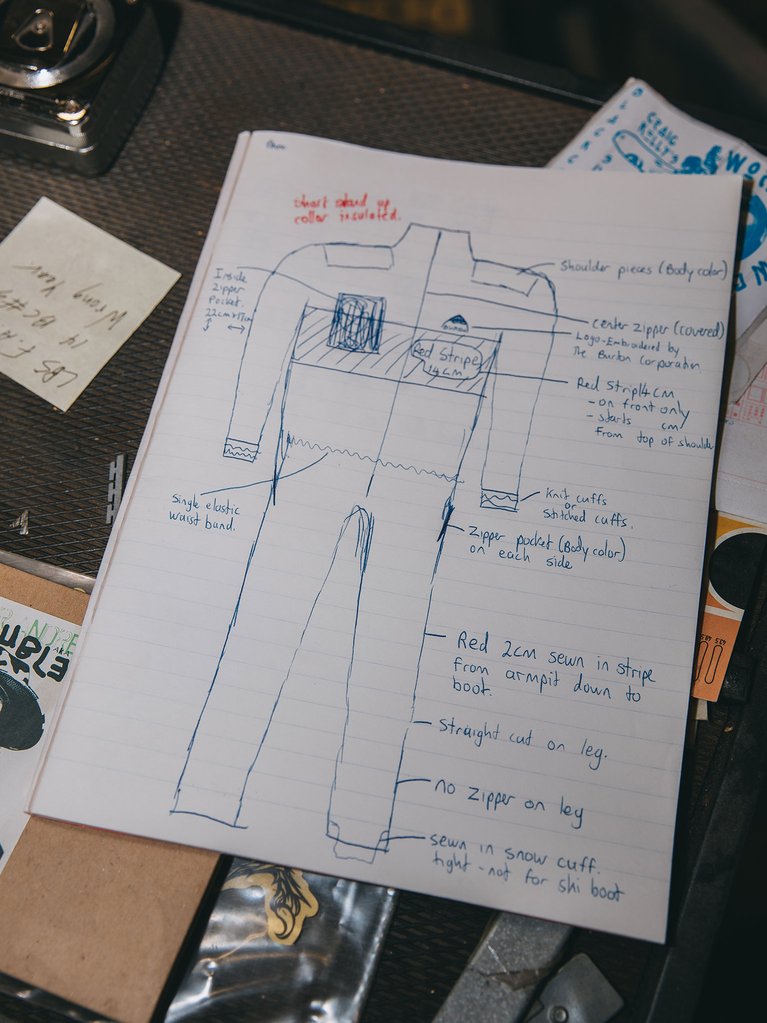 short stand up
collar insulated.
Inside
Zipper
Pocket.
22cm x 17cm
Shoulder pieces (Body color)
center Zipper (covered)
Logo-Embroidered by
The Burton Corporation.
BURTON
Red Stripe
14cm
Red Strip 14cm
- on front only
- starts cm
From top of shoulder
Single elastic
waist band.
Knit cuffs
or
Stitched cuffs.
Zipper pocket (Body color)
on each side
Red 2cm sewn in stripe
from armpit down to
boot.
Straight cut on leg.
no Zipper on leg
sewn in snow cuff.
tight - not for ski boot
CRAIG
KELLY'S
WO
Wrong Year